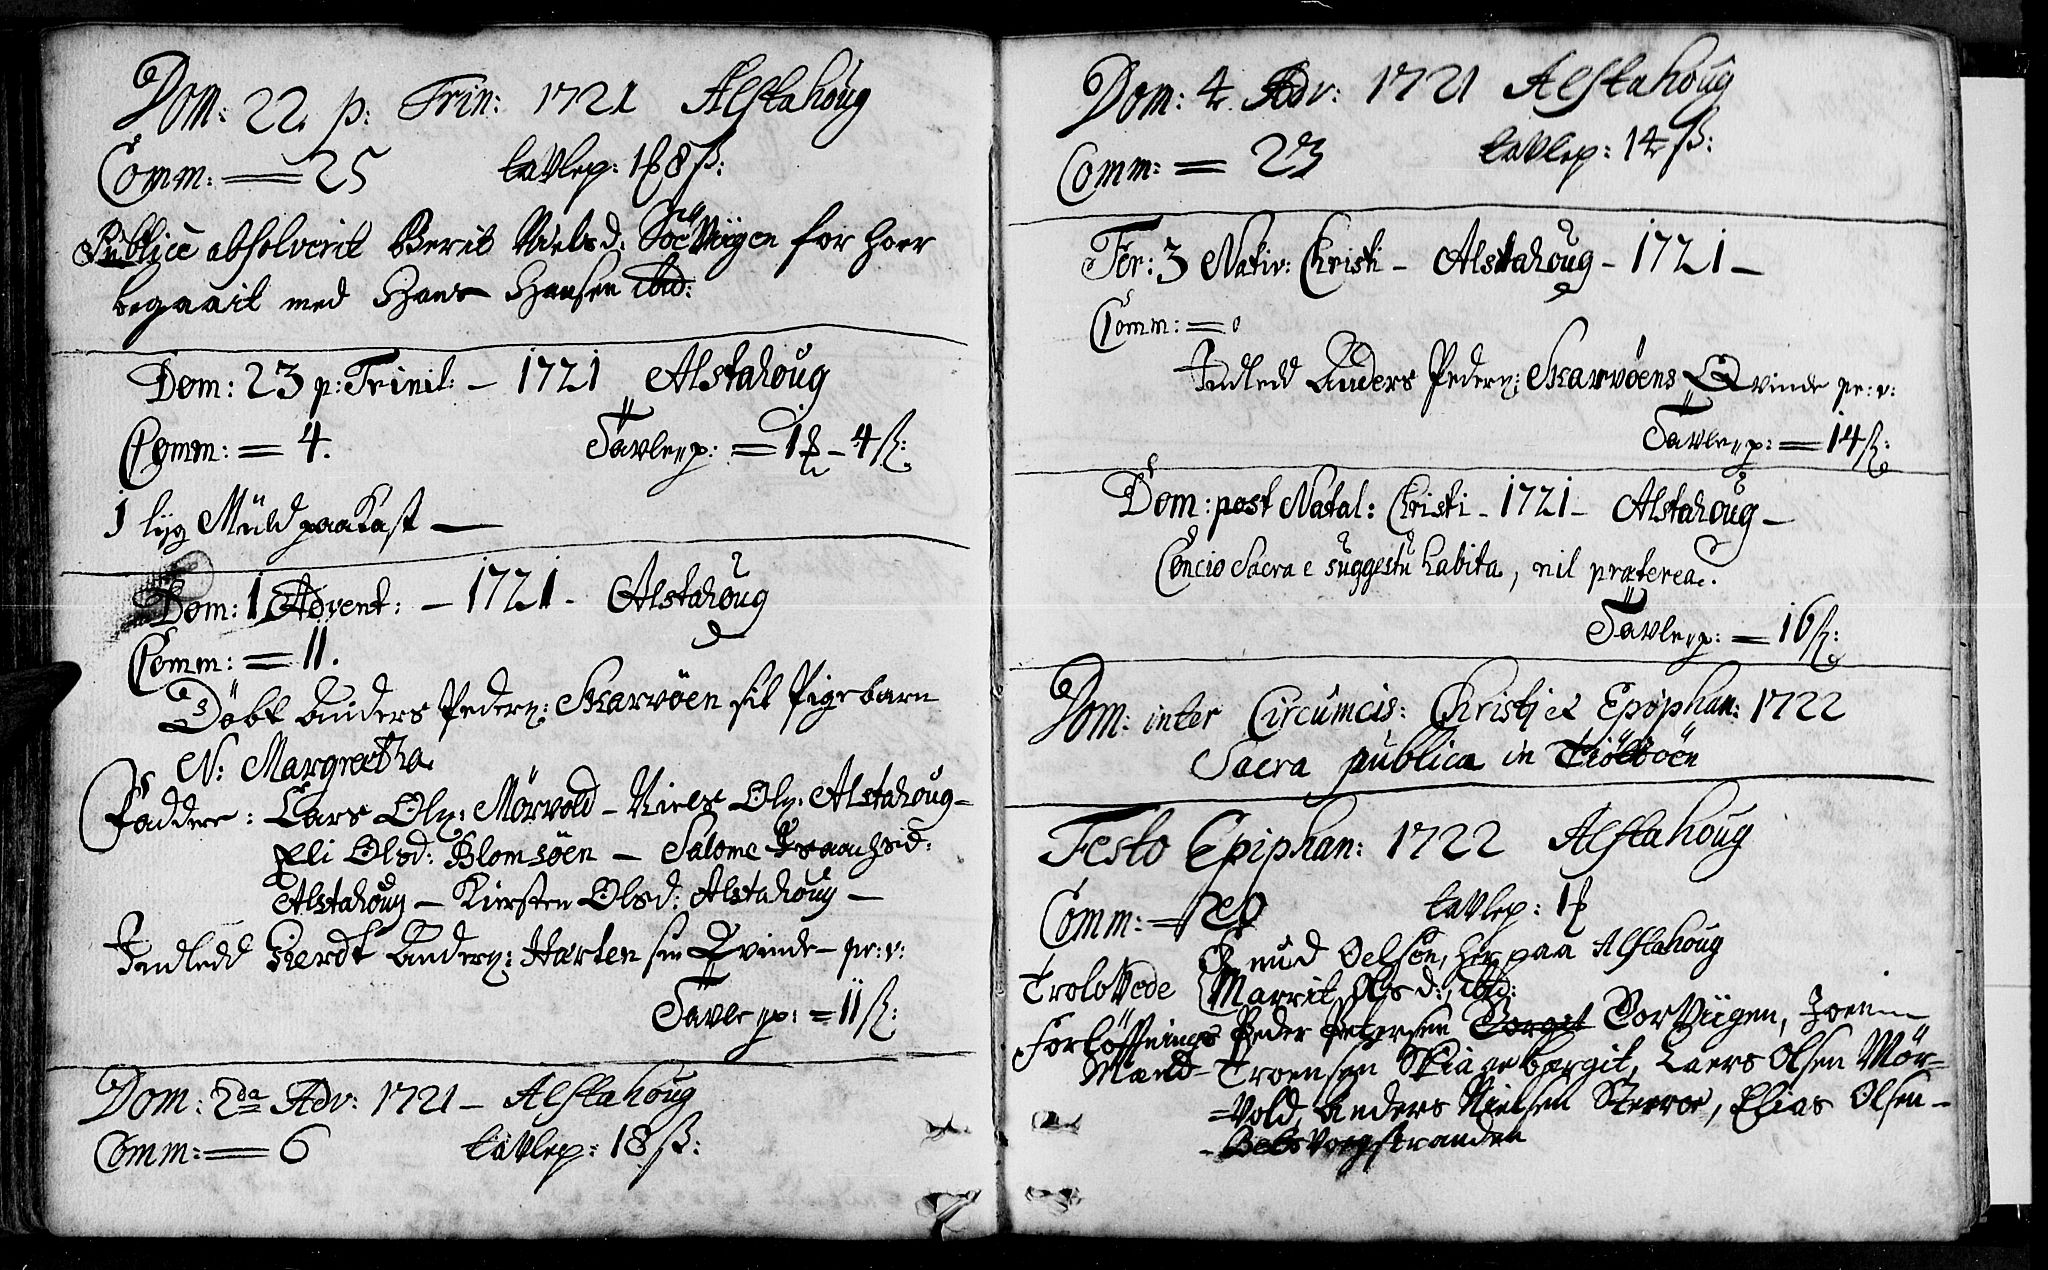 Dom: 22. p: Trin: 1721 Alstahoug
Comm: = 25 tavlep: 1 8 ß:
Publice absolverit Berit Nielsd: Søe Viigen for hoer
begaait med Hans Hansen ibid:
Dom: 23 p: Trinit: – 1721 Alstahoug
Comm: = 4. Tavlep: = 1 – 4 ß:
1 liig Muld paakast —
Dom: 1 Advent: – 1721 – Alstahoug
Comm: = 11.
Døbt Anders Peders: Skarvøen sit Pigebarn
N: Margretha
Faddere: Lars Ols: Mørvold – Niels Ols: Alstahoug –
Eli Olsd: Blomsøen – Salome
Alstahoug – Kirsten Olsd: Alstahoug –
Indledd Gierdt Anders: Harten sin Qvinde – pr: v:
Tavlep: = 11 ß:
Dom: 2da Adv: 1721 – Alstahoug
Comm: = 6 tavlep: 18 ß:
Dom: 4 Adv: 1721 Alstahoug
Comm: = 23 tavlep: 14 ß:
Fer: 3 Nativ: Christi – Alstahoug – 1721 –
Comm: = 0
Indledd Anders Peders: Skarvøens Qvinde pr: v:
Tavlep: = 14 ß:
Dom: post Natal: Christi – 1721 – Alstahoug –
Concio Sacra e suggestu habita, nil præterea.
Tavlep: = 16 ß:
Dom: inter Circumcis: Christi et Epiphan: 1722
Sacra publica in Tiøtøen
Festo Epiphan: 1722 Alstahoug
Comm: = tavlep: 1
Knud Oelsen, her paa Alstahoug
Trolovede Marrit Olsd:, ibid:
Forløffnings Peder Petersen Torviigen, Joen
Mænd – Troensen Skiaggebergit, Laers Olsen Mør-
=vold Anders Nielsen Sterroe, Elias Olsen –